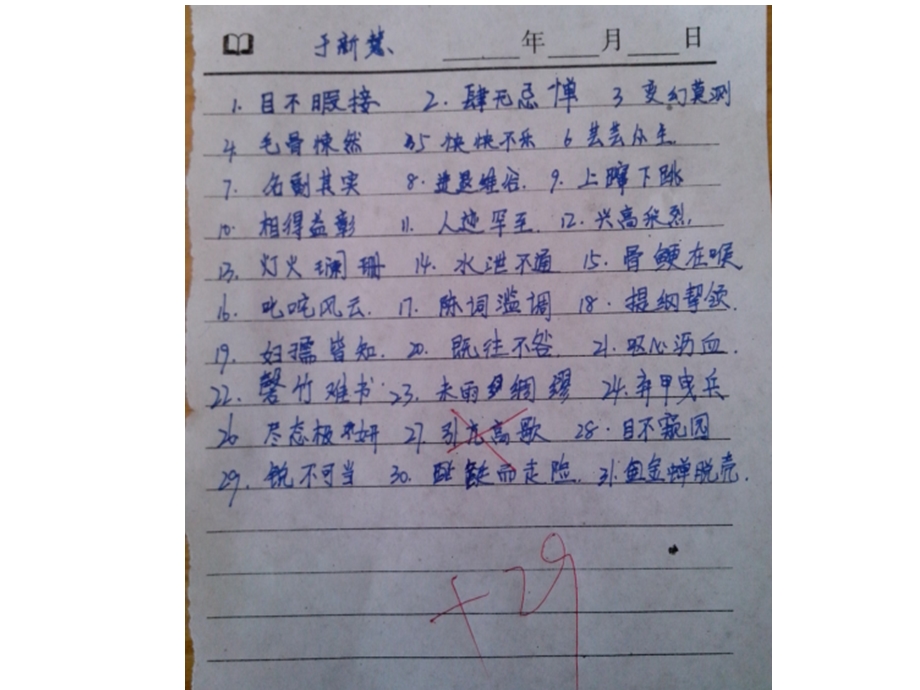 于新慧 ____年____月____日
1. 目不暇接 2. 肆无忌惮 3 变幻莫测
4 毛骨悚然 5 怏怏不乐 6 芸芸众生
7. 名副其实 8. 进退维谷. 9. 上蹿下跳
10. 相得益彰 11. 人迹罕至. 12. 兴高采烈.
13. 灯火阑珊 14. 水泄不通 15. 骨鲠在喉
16 叱咤风云. 17. 陈词滥调 18. 提纲挈领.
19. 妇孺皆知. 20. 既往不咎. 21. 呕心沥血.
22. 罄竹难书. 23. 未雨绸缪 24. 弃甲曳兵
26 尽态极妍 27. 引亢高歌 28. 目不窥园
29. 锐不可当 30. 铤而走险. 31. 金蝉脱壳.
+29